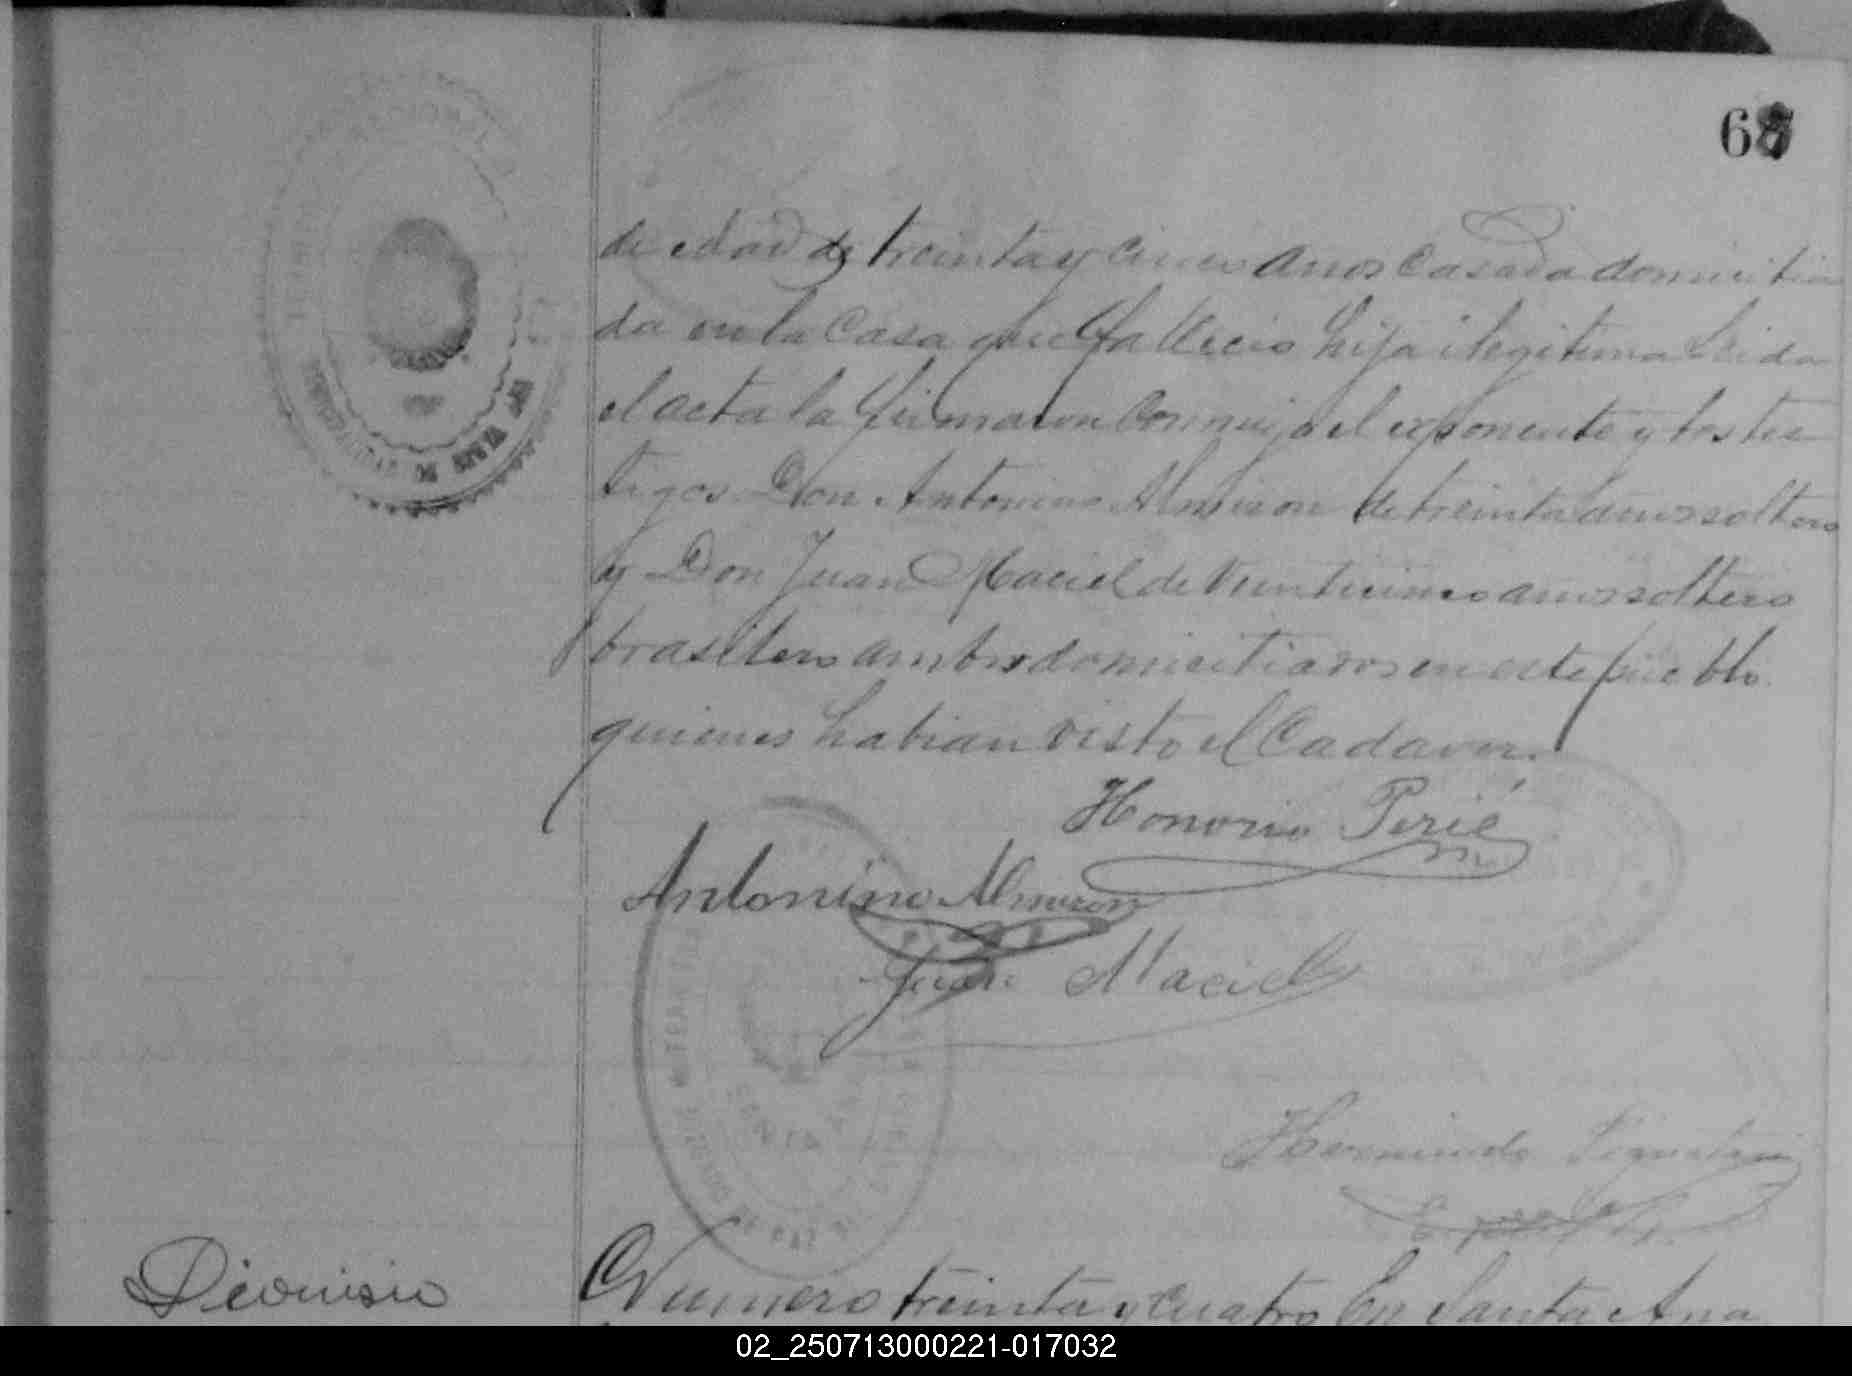 67
de edad de treinta y cinco anos Casada domicilia
da en la Casa que fallecio hija ilegitima Leida
el acta la firmaron Conmigo el exponente y los tes
tigos Don Antonino Almiron de treinta anos soltero
y Don Juan Maciel de Veinticinco anos soltero
brasilero ambos domiciliados en este pueblo
quienes habian visto el Cadaver.
Honorio Perié
Antonino Almiron
Juan Maciel
Dionisio
Numero treinta y cuatro En Santa Ana
02_250713000221-017032